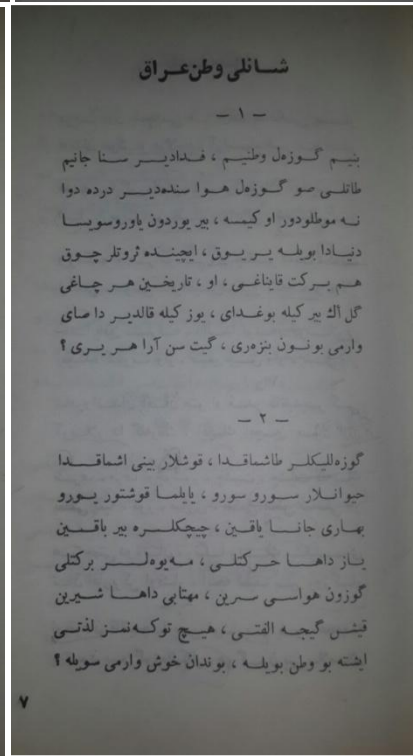 شانلی وطن عراق
— ۱ —
بنیم گوزهل وطنیم ، فدادیر سنا جانیم
طاتلی صو گوزهل هوا سنده‌دیر درده دوا
نه موطلودور او کیمه ، بیر یوردون یاوروسویسا
دنیادا بویله یر یوق ، ایچینده ثروتلر چوق
هم برکت قایناغی ، او ، تاریخین هر چاغی
گل اك بیر کیله بوغدای ، یوز کیله قالدیر دا صای
وارمی بونون بنزه‌ری ، گیت سن آرا هر یری ؟
— ۲ —
گوزه‌للیکلر طاشماقدا ، قوشلار بینی اشماقدا
حیوانلار سورو سورو ، یایلما قوشتور یورو
بهاری جانا یاقین ، چیچکلره بیر باقین
یاز داها حرکتلی ، مه‌یوه‌لر برکتلی
گوزون هواسی سرین ، مهتابی داها شیرین
قیشن گیجه الفتی ، هیچ توکه‌نمز لذتی
ایشته بو وطن بویله ، بوندان خوش وارمی سویله ؟
۷